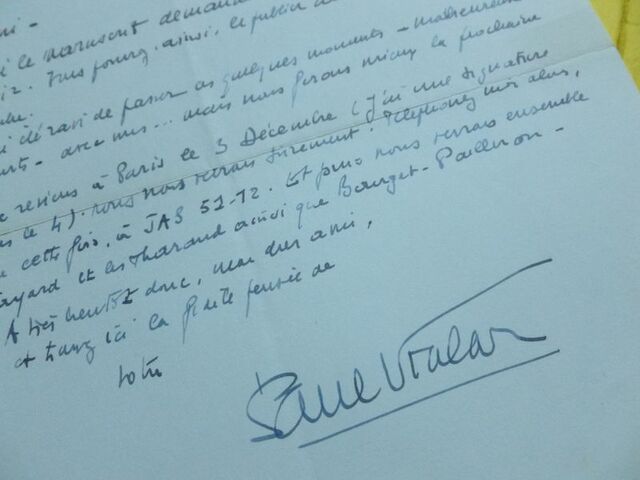 le manuscrit
ainsi. le publier
ravi de passer ces quelques moments - malheureusement
avec vous... mais nous ferons mieux la prochaine
reviens à Paris le 3 Décembre (j'ai une signature
le 4). nous nous verrons sûrement. Téléphonez moi alors,
cette fois, à JAS 51-72. Et puis nous verrons ensemble
Fayard et les Tharaud ainsi que Bourget-Pailleron -
A très bientôt donc, mon cher ami,
et trouvez ici la fidèle pensée de
votre
Paul Vialar